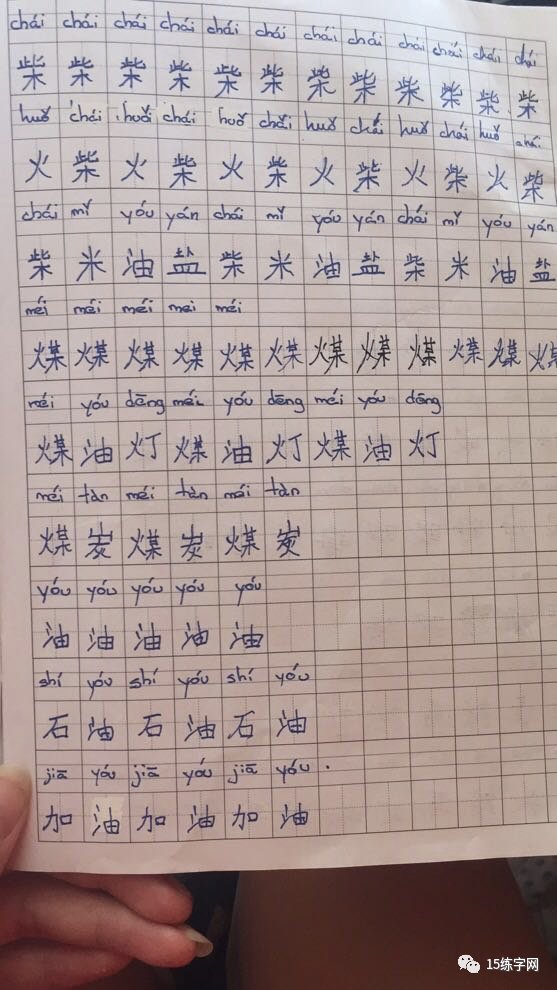 chái chái chái chái chái chái chái chái chái chái chái chái
柴 柴 柴 柴 柴 柴 柴 柴 柴 柴 柴 柴
huǒ chái huǒi chái huǒ chái huǒ chái huǒ chái huǒ chái
火 柴 火 柴 火 柴 火 柴 火 柴 火 柴
chái mǐ yóu yán chái mǐ yóu yán chái mǐ yóu yán
柴 米 油 盐 柴 米 油 盐 柴 米 油 盐
méi méi méi mei méi
煤 煤 煤 煤 煤 煤 煤 煤 煤 煤 煤 煤
méi yóu dēng méi yóu dēng méi yóu dēng
煤 油 灯 煤 油 灯 煤 油 灯
méi tàn méi tàn méi tàn
煤 炭 煤 炭 煤 炭
yóu yóu yóu yóu yóu
油 油 油 油 油
shí yóu shí yóu shí yóu
石 油 石 油 石 油
jiā yóu jiā yóu jiā yóu
加 油 加 油 加 油
15练字网